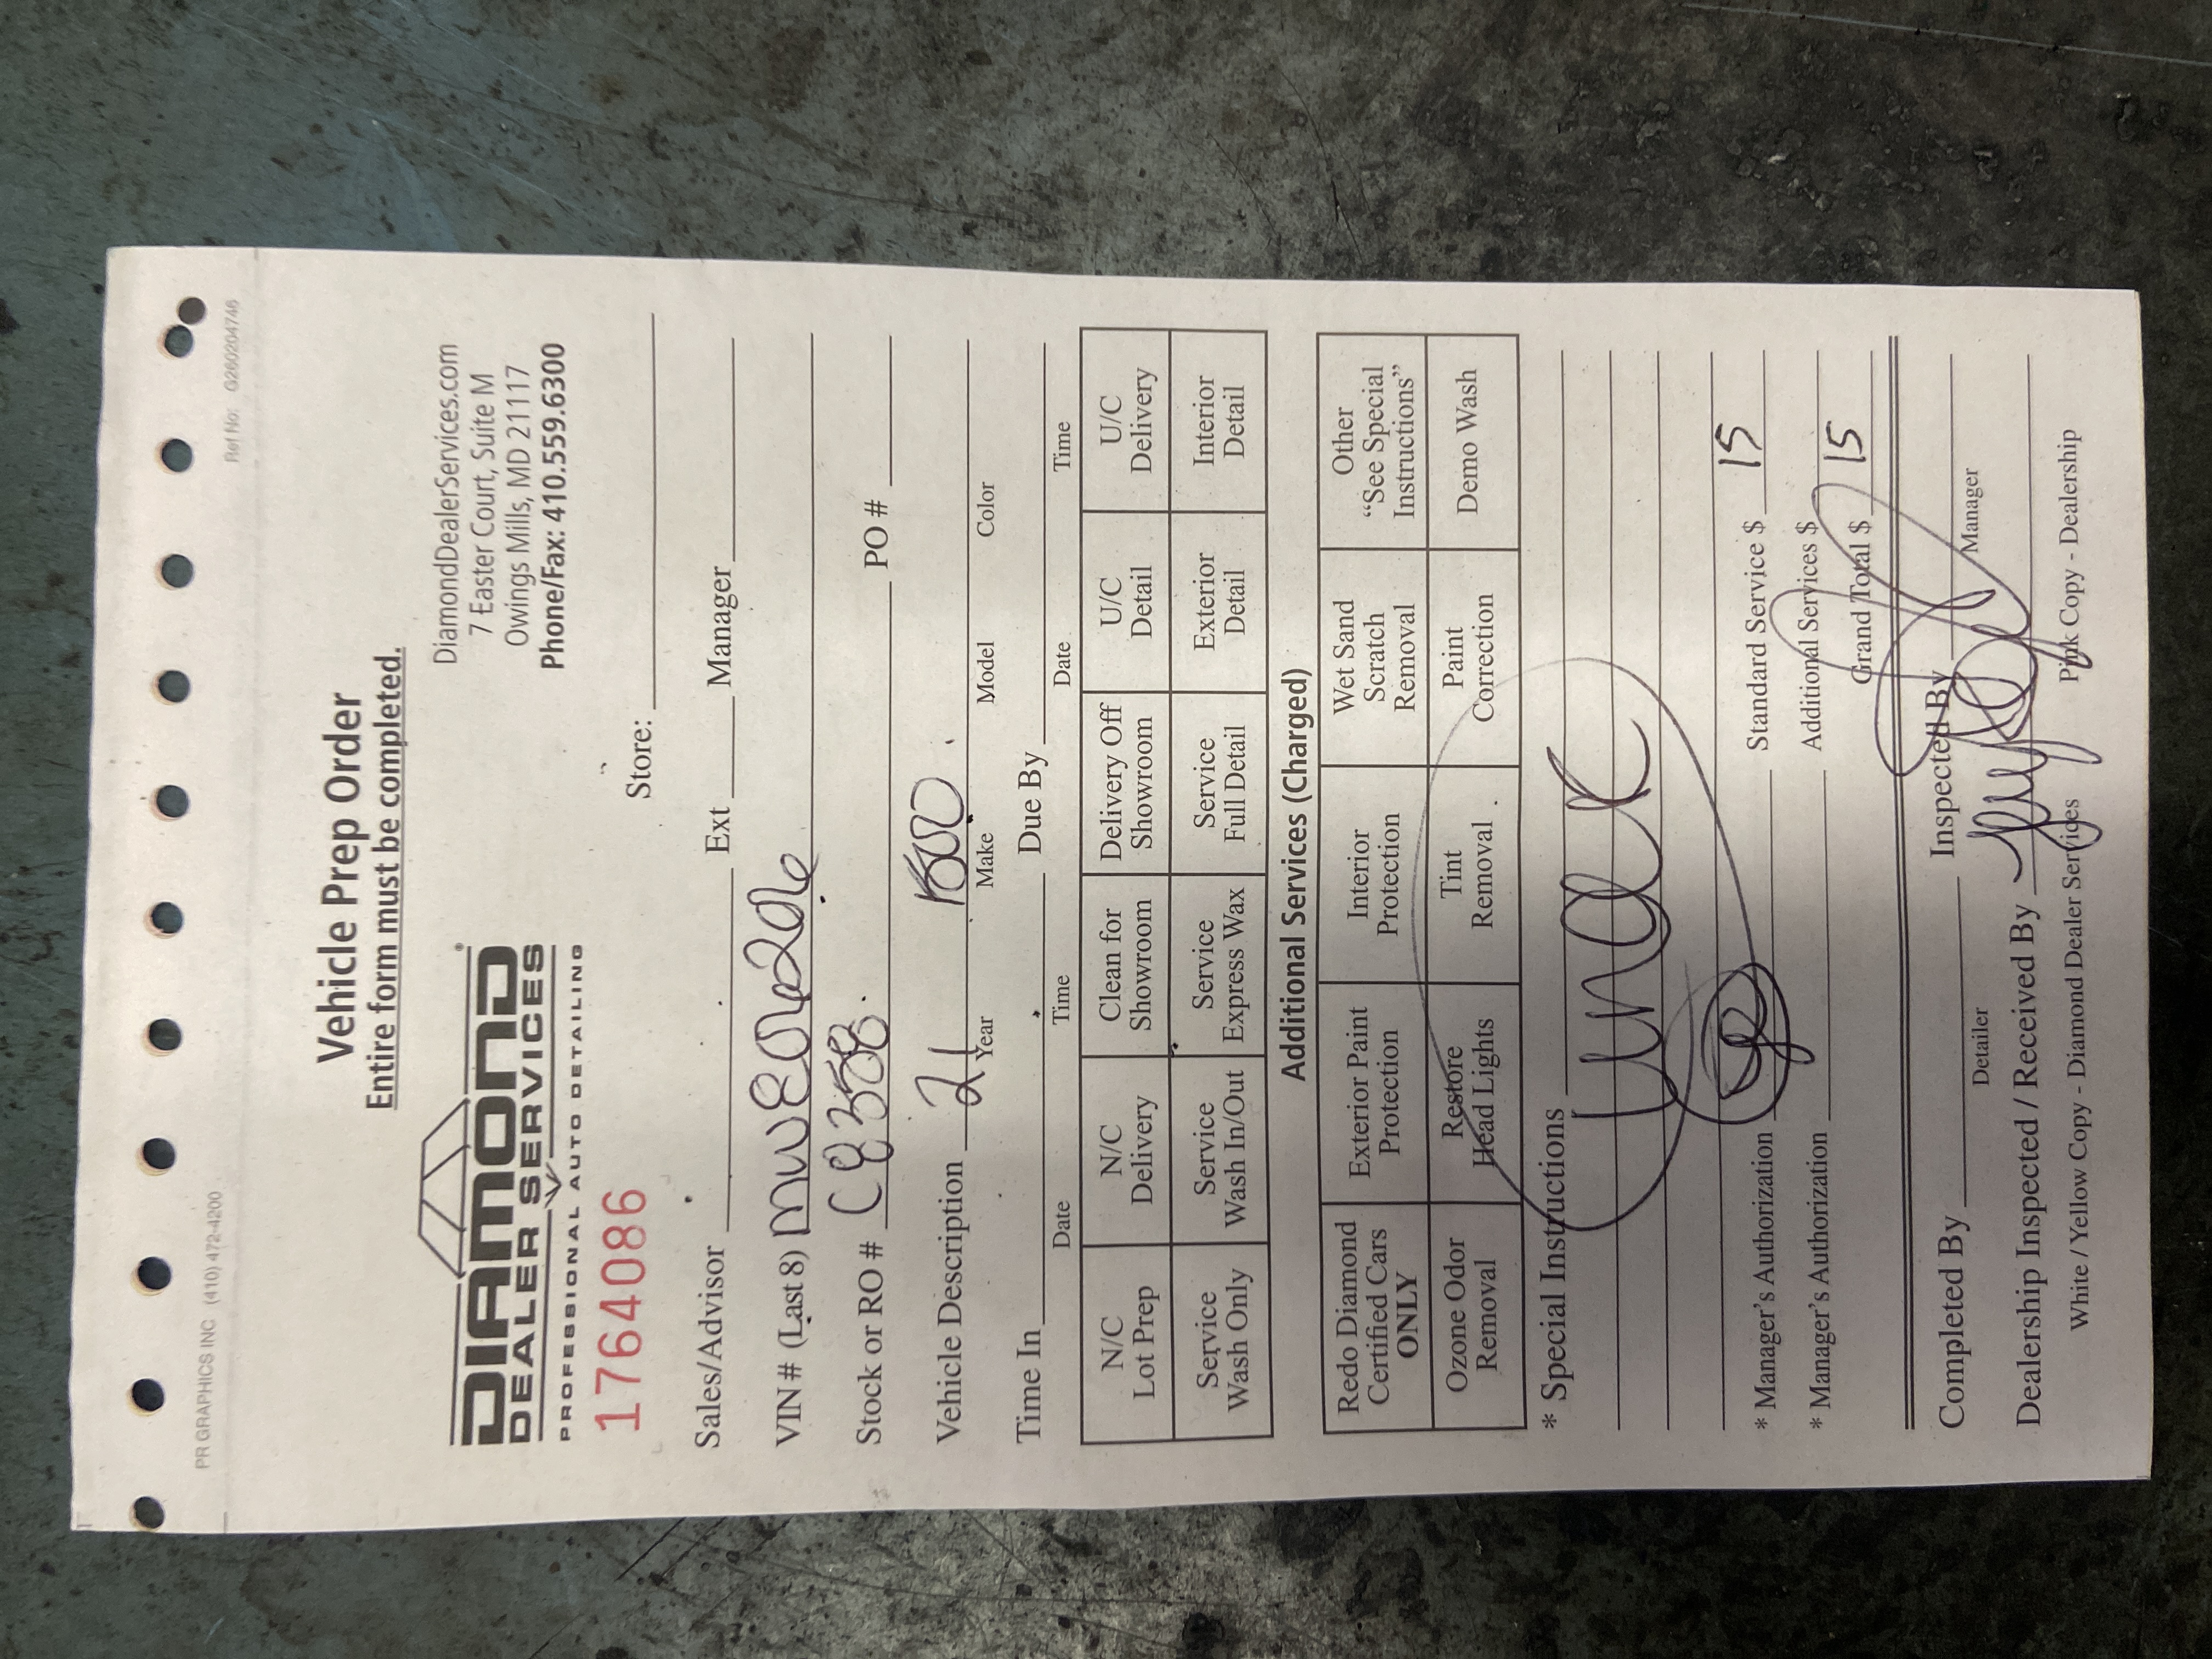 PR GRAPHICS INC (410) 472-4200 Ref No: G2602204746
Vehicle Prep Order
Entire form must be completed.
DIAMOND®
DEALER SERVICES
PROFESSIONAL AUTO DETAILING
DiamondDealerServices.com
7 Easter Court, Suite M
Owings Mills, MD 21117
Phone/Fax: 410.559.6300
1764086
Store:
Sales/Advisor Ext Manager
VIN # (Last 8)
Stock or RO # C8388 PO #
Vehicle Description 21 1500
Year Make Model Color
Time In Due By
Date Time Date Time
N/C Lot Prep
N/C Delivery
Clean for Showroom
Delivery Off Showroom
U/C Detail
U/C Delivery
Service Wash Only
Service Wash In/Out
Service Express Wax
Service Full Detail
Exterior Detail
Interior Detail
Additional Services (Charged)
Redo Diamond Certified Cars ONLY
Exterior Paint Protection
Interior Protection
Wet Sand Scratch Removal
Other "See Special Instructions"
Ozone Odor Removal
Restore Head Lights
Tint Removal
Paint Correction
Demo Wash
* Special Instructions
* Manager's Authorization Standard Service $ 15
* Manager's Authorization Additional Services $
Grand Total $ 15
Completed By Inspected By
Detailer Manager
Dealership Inspected / Received By
White / Yellow Copy - Diamond Dealer Services Pink Copy - Dealership